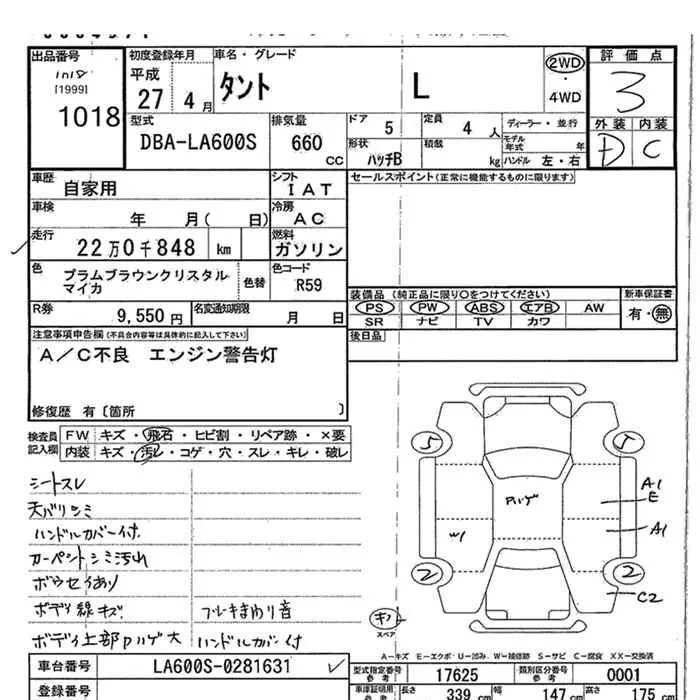 出品番号
1018
[1999]
1018
初度登録年月
平成
27 4月
車名・グレード
タント L
2WD
・
4WD
評価点
3
外装 内装
D C
型式
DBA-LA600S
排気量
660 CC
ドア 5
定員 4 人
ディーラー・並行
形状 ハッチB
積載 kg
モデル年式 年
ハンドル 左・右
車歴 自家用
シフト IAT
セールスポイント(正常に機能するものに限ります)
車検 年 月( 日)
冷房 AC
走行 22万0千848 km
燃料 ガソリン
色 プラムブラウンクリスタルマイカ
色替
色コード R59
装備品 (純正品に限り○をつけてください)
新車保証書
PS PW ABS エアB AW
有・無
SR ナビ TV カワ
R券 9,550円
名変通知期限 月 日
後日品
注意事項申告欄(不具合内容等は具体的に記入して下さい)
A/C不良 エンジン警告灯
修復歴 有〔箇所 〕
検査員記入欄
FW キズ・飛石・ヒビ割・リペア跡・×要
内装 キズ・汚レ・コゲ・穴・スレ・キレ・破レ
シートスレ
天バリシミ
ハンドルカバー付
カーペントシミ汚れ
ボウセイあり
ボディ線キズ ブレーキまわり音
ボディ上部Pハゲ大 ハンドルカバー付
5 5
A1
E
Pハゲ
W1
A1
2 2
C2
キハ
スペア
A-キズ E-エクボ U-凹み W-補修跡 S-サビ C-腐食 XX-交換済
車台番号 LA600S-0281631
型式指定番号 参考 17625
類別区分番号 参考 0001
登録番号
車庫証明用 参考
長さ 339 cm
幅 147 cm
高さ 175 cm